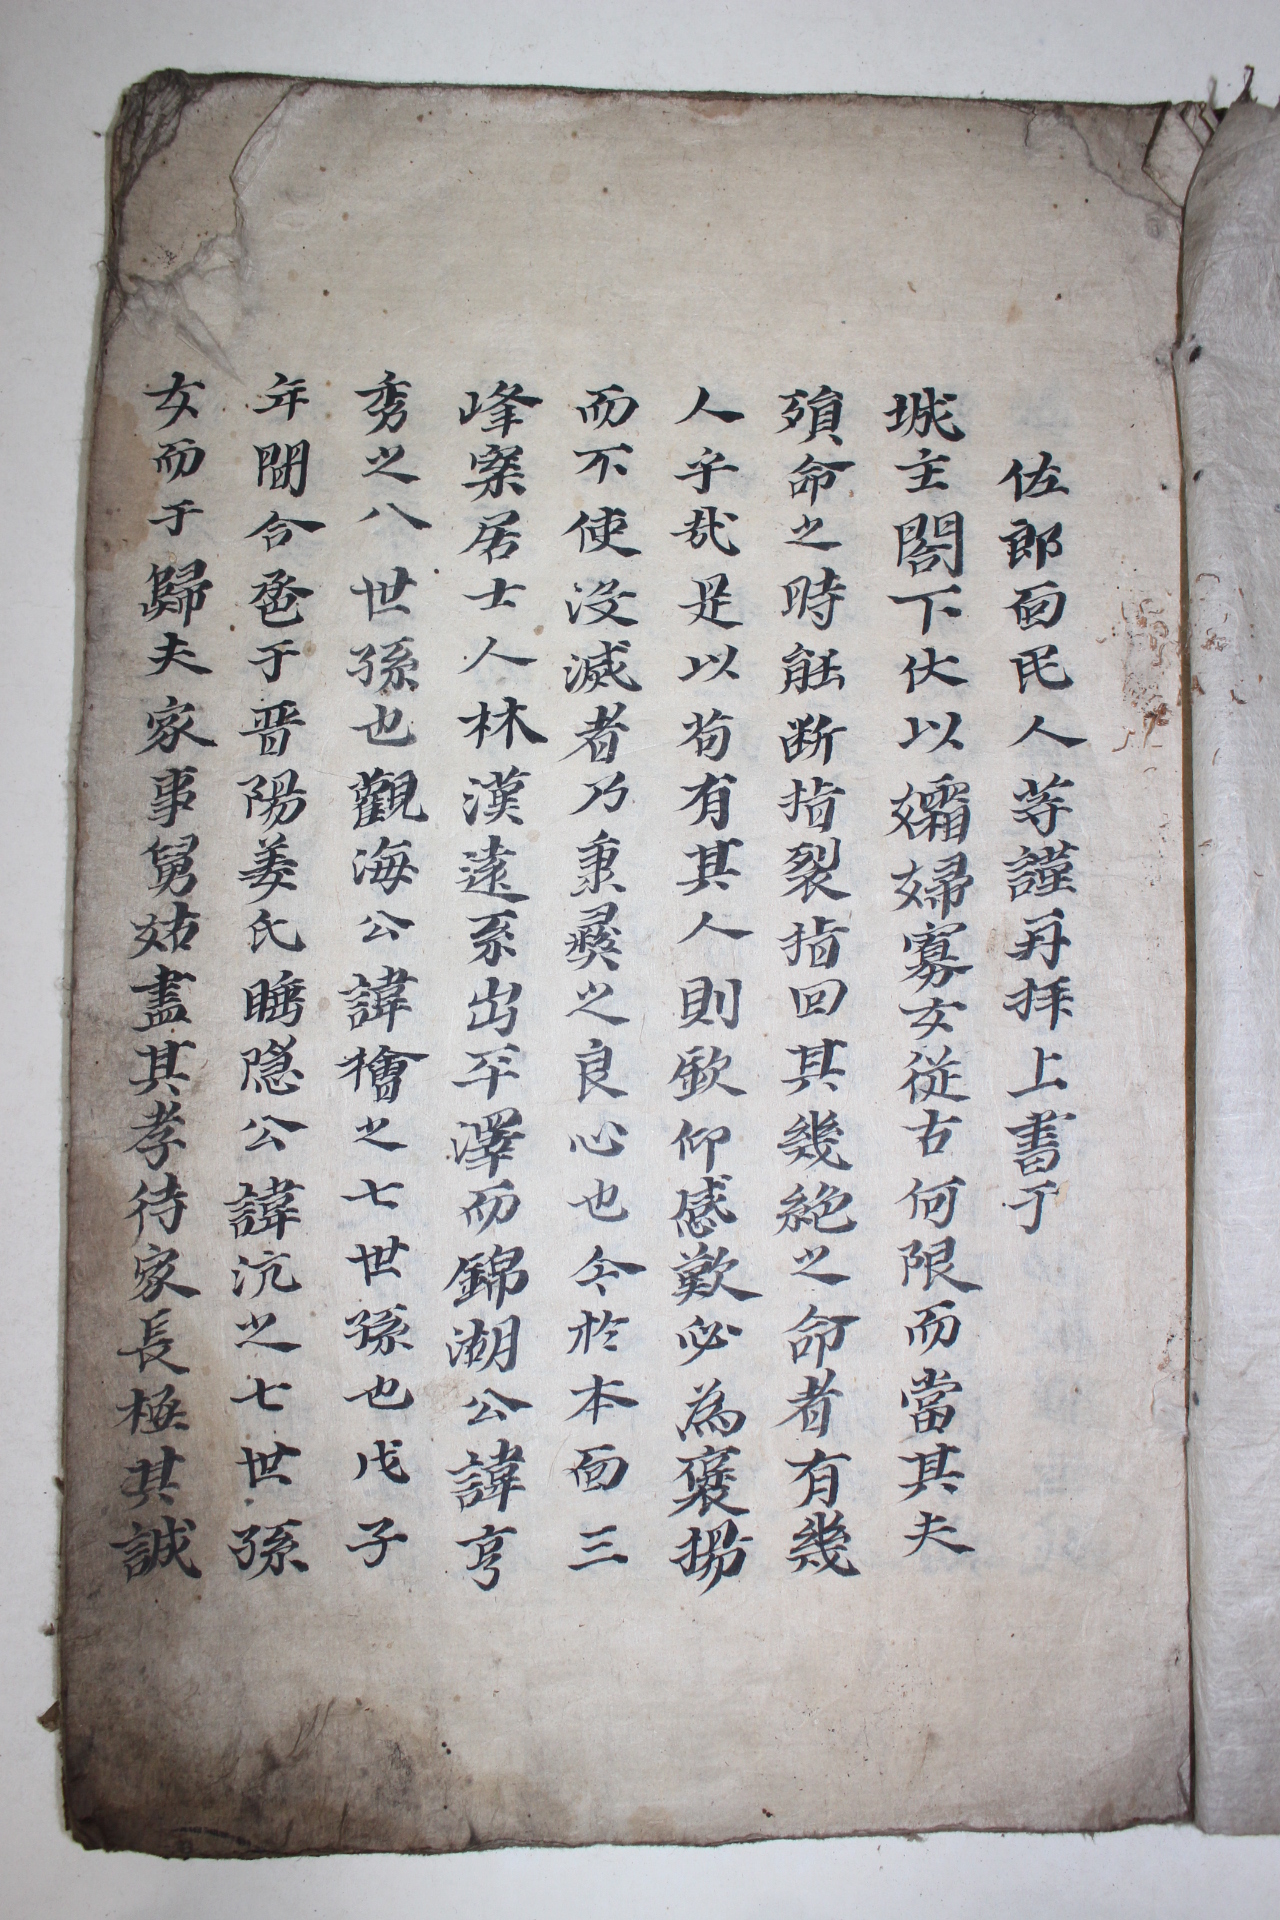 佐郎面民人等謹再拜上書于
城主閤下伏以孀婦寡女從古何限而當其夫
殞命之時能断指裂指回其幾絶之命者有幾
人乎哉是以苟有其人則欽仰感歎必為褒揚
而不使沒滅者乃秉彛之良心也今於本面三
峰案居士人林漢遠系出平澤而錦湖公諱亨
秀之八世孫也觀海公諱檜之七世孫也戊子
年間合巹于晋陽姜氏睡隠公諱沆之七世孫
女而于歸夫家事舅姑盡其孝待家長極其誠